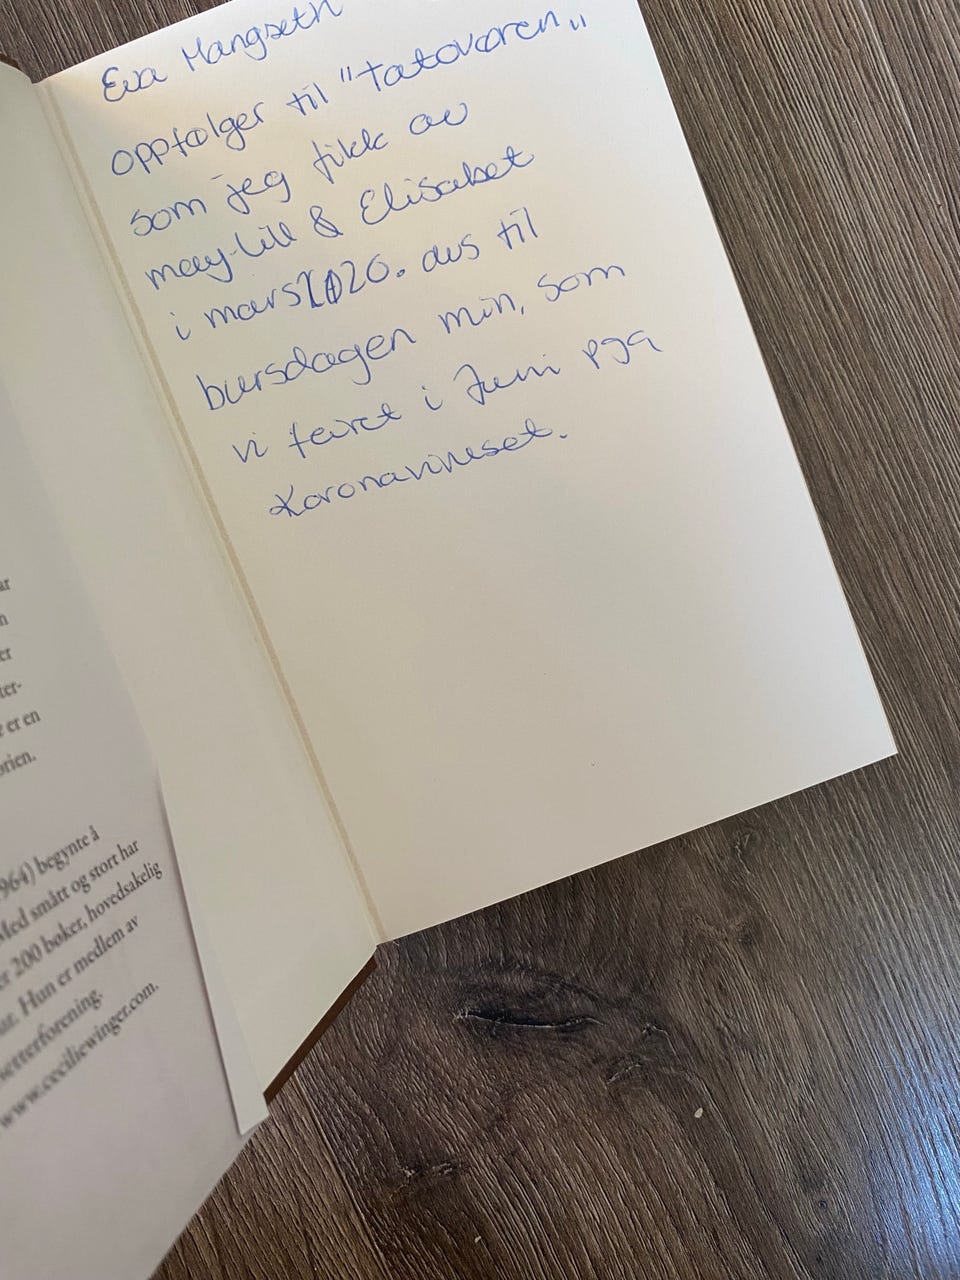 Eva Mangseth
oppfølger til "tatovøren"
som jeg fikk av
may-lill & Elisabet
i mars 2020. dvs til
bursdagen min, som
vi feiret i Juni pga
Koronaviruset.
ar
n
er
ter-
e er en
orien.
964) begynte å
Med smått og stort har
er 200 bøker, hovedsakelig
Hun er medlem av
setterforening.
www.ceciliewinger.com.